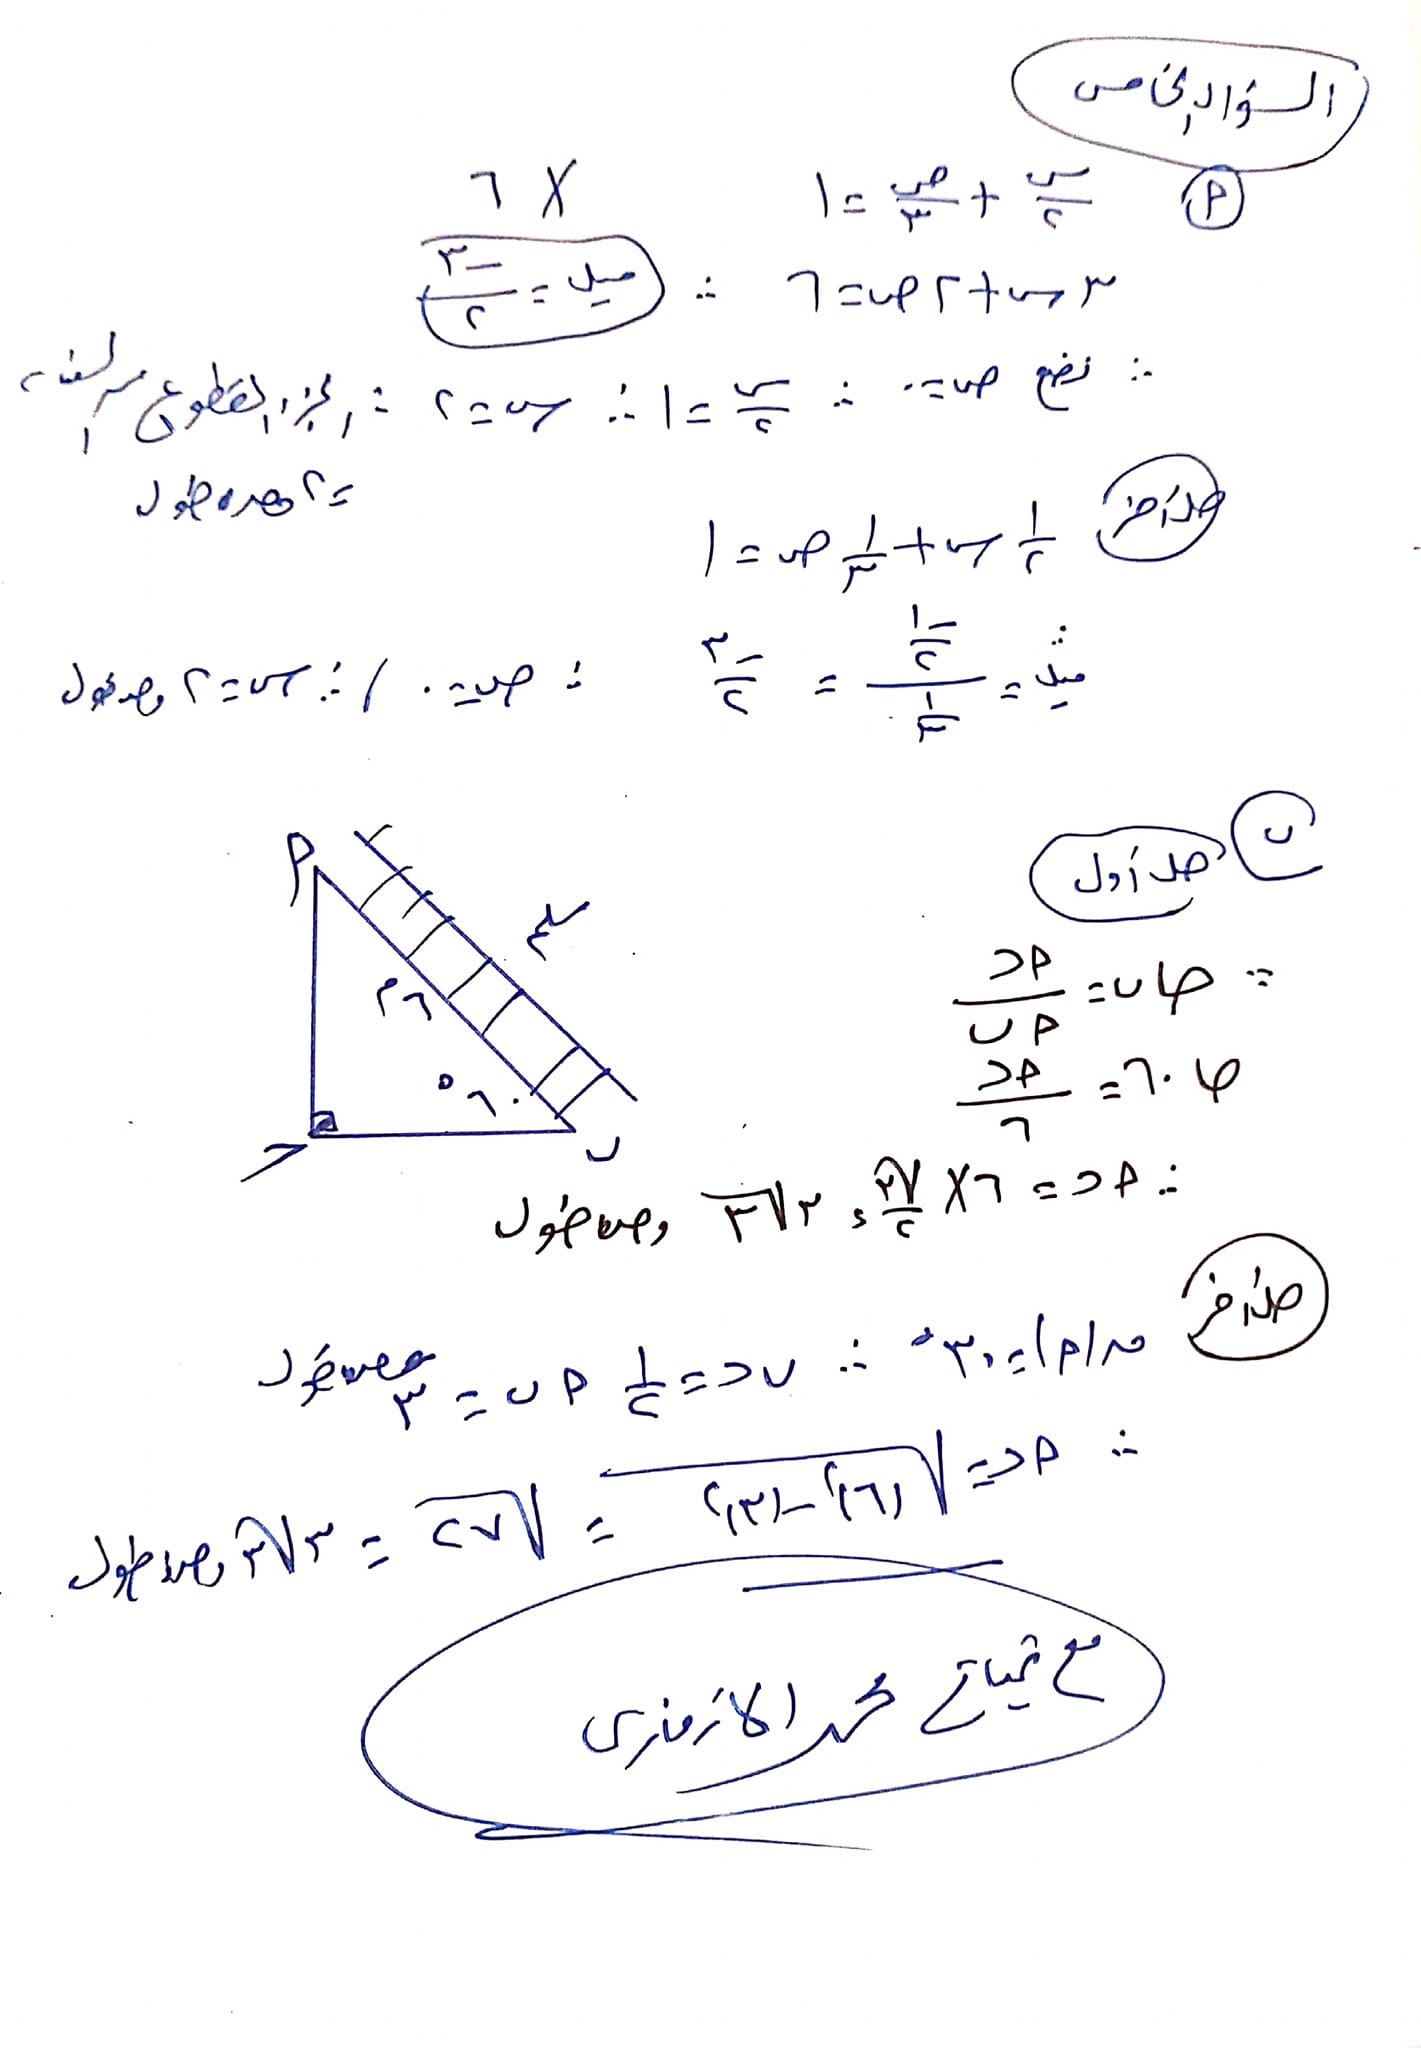 السؤال الخامس
(أ) س/٢ + ص/٣ = ١ × ٦
٣س + ٢ص = ٦ ∴ ميل = -٣/٢
∴ نضع ص = ٠ ∴ س/٢ = ١ ∴ س = ٢ ∴ الجزء المقطوع من السينات
= ٢ وحده طول
حل آخر ١/٢ س + ١/٣ ص = ١
∴ ميل = (-١/٢)/(١/٣) = -٣/٢ ∵ ص = ٠ / ∴ س = ٢ وحده طول
ب
حل أول
أ
سلم
٦م
٦٠°
ب
ح
∵ حا ب = أحـ/أب
حا ٦٠ = أحـ/٦
∴ أحـ = ٦ × √٣/٢ = ٣√٣ وحده طول
حل آخر ق(أ) = ٣٠° ∴ ب حـ = ١/٢ أ ب = ٣ وحده طول
∴ أحـ = √((٦)² - (٣)²) = √٢٧ = ٣√٣ وحده طول
مع تحياتي محمد الازمازى